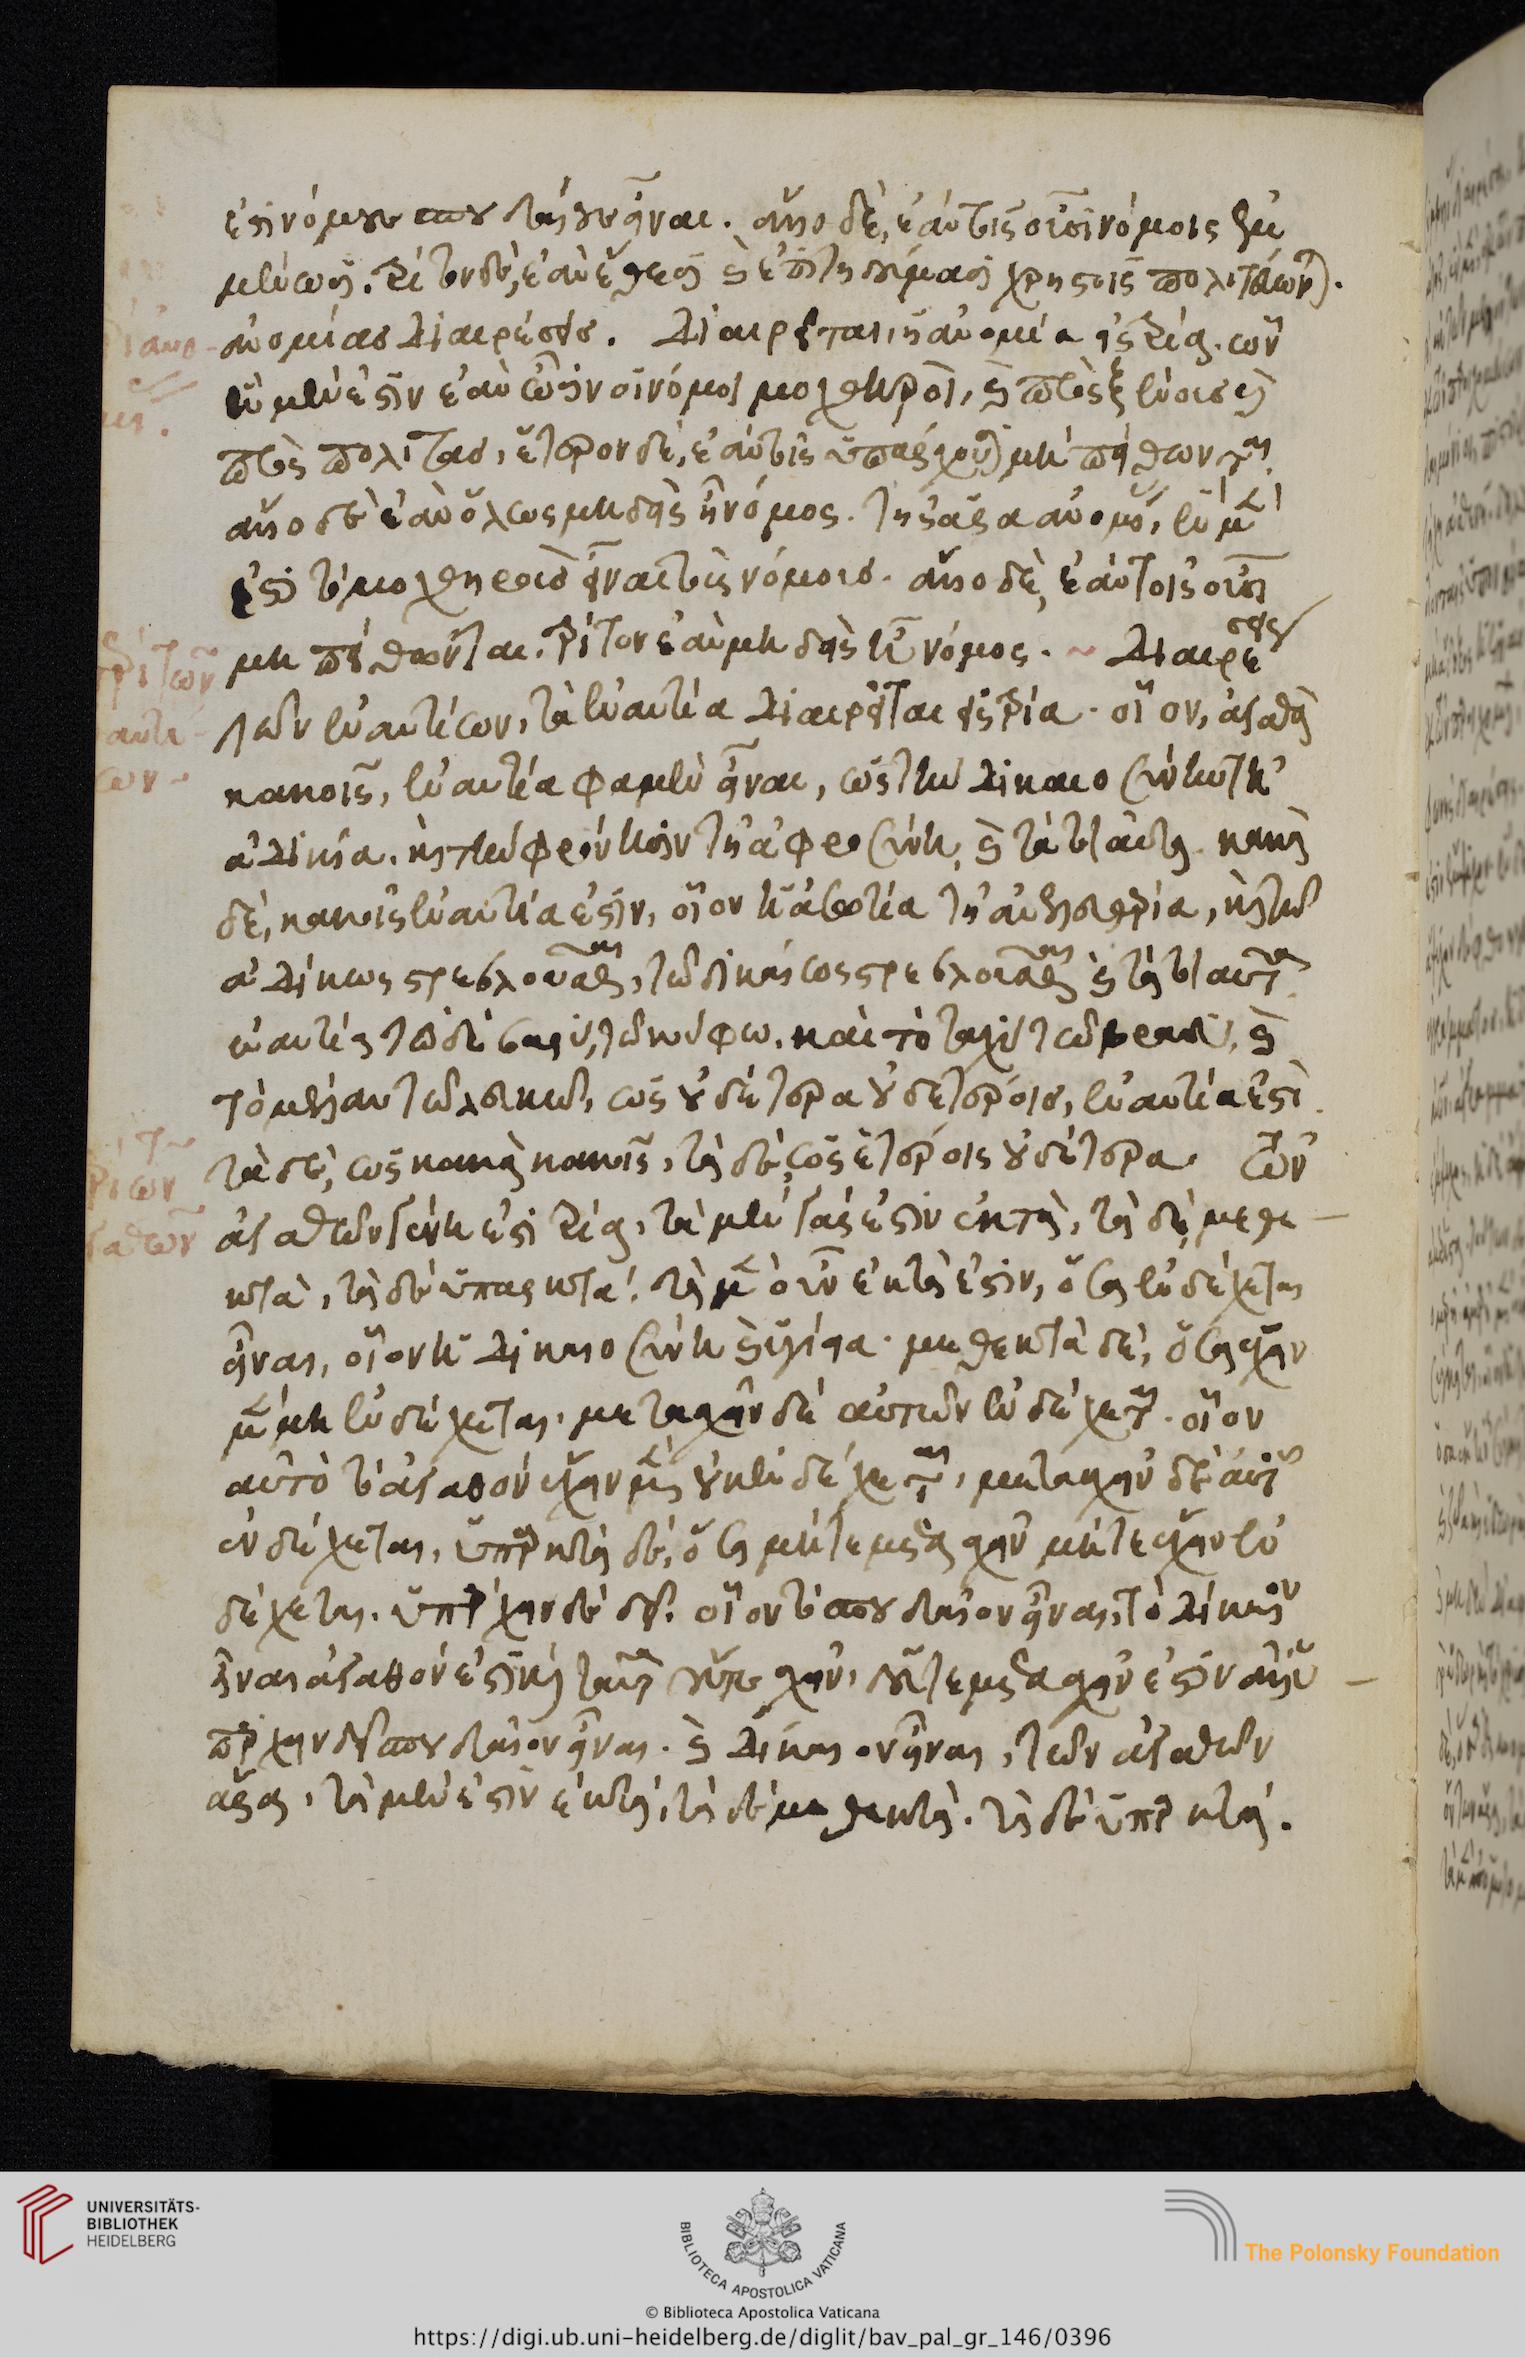 ἐστὶ νόμους σπουδαίους εἶναι. ἄλλο δὲ, ἐὰν τοῖς οὖσι νόμοις ἐμ
μένωσι. τρίτον δὲ, ἐὰν ἔθεσι καὶ ἐπιτηδεύμασι χρηστοῖς πολιτεύωνται.
ἀνομίας διαιρέσεις. Διαιρεῖται ἡ ἀνομία εἰς τρία. ὧν
ἓν μέν ἐστιν ἐὰν ὦσιν οἱ νόμοι μοχθηροὶ, καὶ πρὸς ξένους καὶ
πρὸς πολίτας, ἕτερον δὲ, ἐὰν τοῖς ὑπάρχουσι μὴ πείθωνται.
ἄλλο δὲ ἐὰν ὅλως μηδεὶς ᾖ νόμος. τῆς ἄρα ἀνομίας, ἓν μέν
ἐστι τὸ μοχθηροὺς εἶναι τοὺς νόμους. ἄλλο δὲ, ἐὰν τοῖς οὖσι
μὴ πείθωνται. τρίτον ἐὰν μηδεὶς ᾖ νόμος. ~ Διαιρέσεις
τῶν ἐναντίων, τὰ ἐναντία διαιρεῖται εἰς τρία. οἷον, ἀγαθὰ
κακοῖς, ἐναντία φαμὲν εἶναι, ὡς τὴν δικαιοσύνην τῇ
ἀδικία. καὶ τὴν φρόνησιν τῇ ἀφροσύνη, καὶ τὰ τοιαῦτα. κακὰ
δὲ, κακοῖς ἐναντία ἐστίν, οἷον ἡ ἀσωτία τῇ ἀνελευθερία, καὶ τὸ
ἀδίκως στρεβλοῦσθαι, τῶ δικαίως στρεβλοῦσθαι καὶ τὰ τοιαῦτα
ἐναντία τὸ δὲ βαρύ, τῶ κούφω. καὶ τὸ ταχὺ τῶ βραδεῖ, καὶ
τὸ μέλαν τῶ λευκῶ, ὡς οὐδέτερα οὐδετέροις, ἐναντία ἐστὶ.
τὰ δὲ, ὡς κακὰ κακοῖς, τὰ δὲ, ὡς ἑτέροις οὐδέτερα. τῶν
ἀγαθῶν γένη ἐστὶ τρία, τὰ μὲν γάρ ἐστιν ἑκτὰ, τὰ δὲ, μεθε
κτὰ, τὰ δὲ ὑπαρκτά. τὰ μὲν οὖν ἑκτά ἐστιν, ὅσα ἐνδέχεται
εἶναι, οἷον ἡ δικαιοσύνη καὶ ὑγίεια. μεθεκτὰ δὲ, ὅσα ἔχειν
μὲν μὴ ἐνδέχεται, μετασχεῖν δὲ αὐτῶν ἐνδέχεται. οἷον
αὐτὸ τὸ ἀγαθὸν ἔχειν μὲν οὐκ ἐνδέχεται, μετασχεῖν δὲ αὐτοῦ
ἐνδέχεται, ὑπαρκτὰ δὲ, ὅσα μήτε μετασχεῖν μήτε ἔχειν ἐν
δέχεται. ὑπάρχειν δὲ δεῖ. οἷον τὸ σπουδαῖον εἶναι, τὸ δίκαιον
εἶναι ἀγαθόν ἐστι καὶ ταῦτα οὔτε σχεῖν, οὔτε μετασχεῖν ἐστιν ἀλλ᾽ ὑ
πάρχειν δεῖ σπουδαῖον εἶναι. καὶ δίκαιον εἶναι, τῶν ἀγαθῶν
ἄρα, τὰ μέν ἐστιν ἑκτά, τὰ δὲ μεθεκτὰ. τὰ δὲ ὑπαρκτά.
UNIVERSITÄTS-
BIBLIOTHEK
HEIDELBERG
BIBLIOTECA APOSTOLICA VATICANA
The Polonsky Foundation
© Biblioteca Apostolica Vaticana
https://digi.ub.uni-heidelberg.de/diglit/bav_pal_gr_146/0396